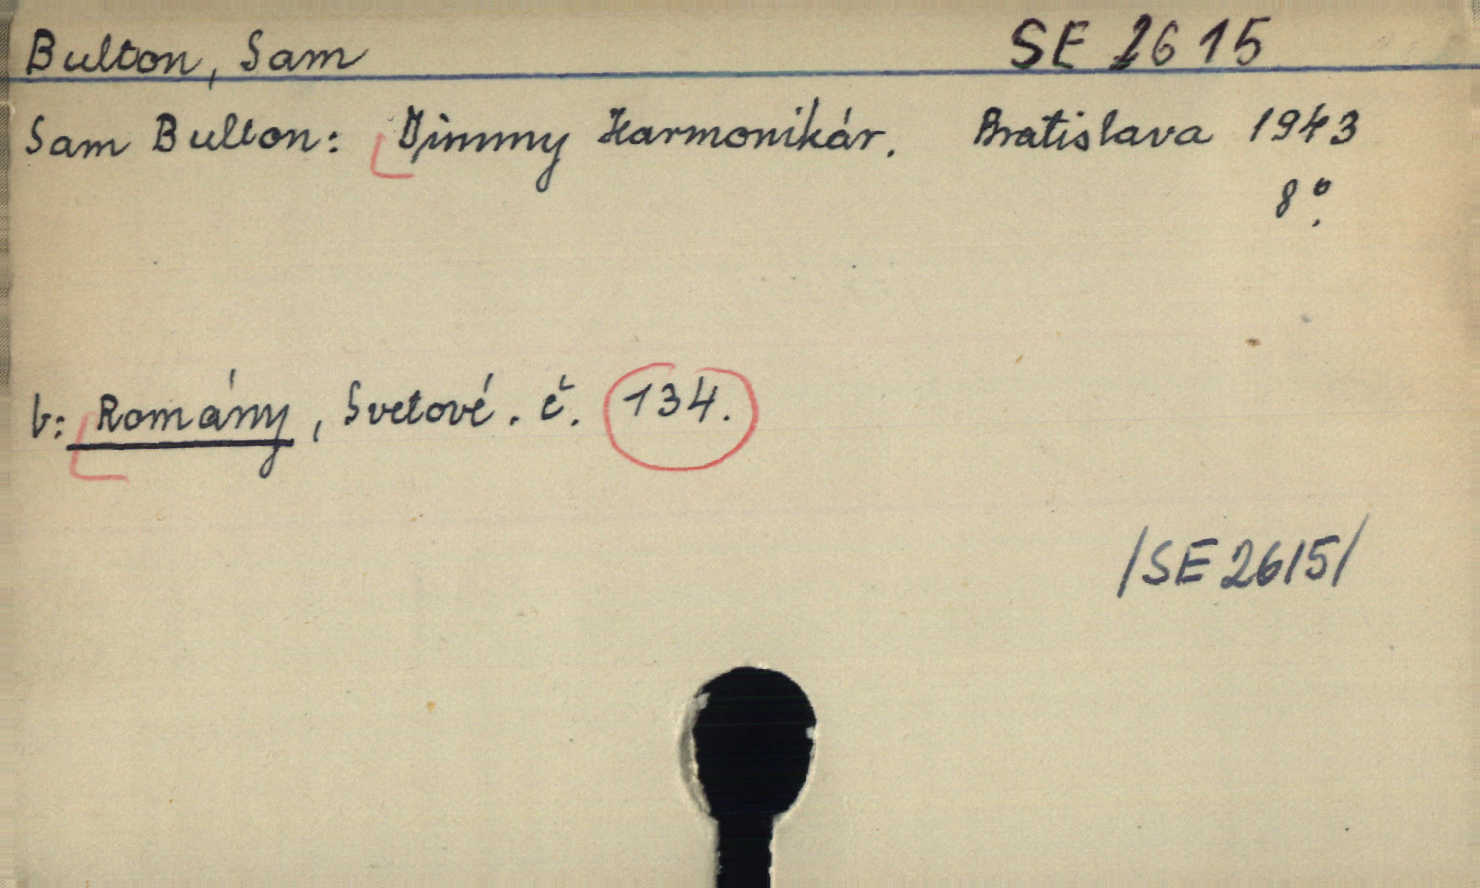 Bulton, Sam SE 2615
Sam Bulton: Djimmy Harmonikár. Bratislava 1943
8º.
b: Romány, Svetové. č. 134.
/SE 2615/